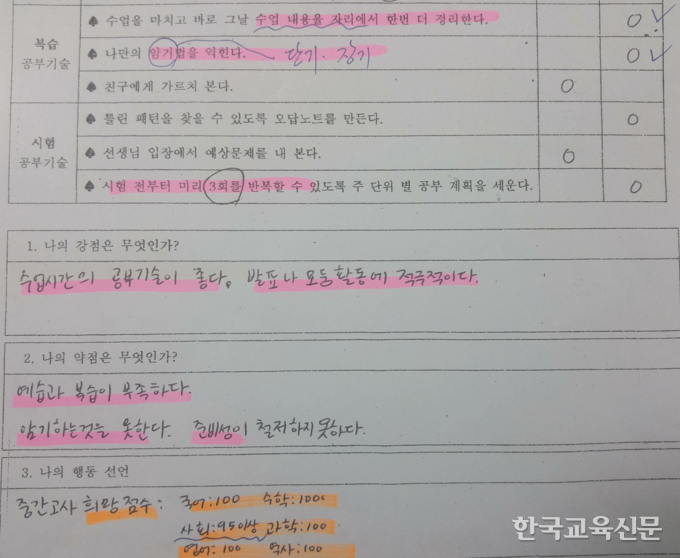 ♠ 수업을 마치고 바로 그날 수업 내용을 자리에서 한번 더 정리한다. O ✓
복습
공부기술
♠ 나만의 암기법을 익힌다. 단기. 장기 O ✓
♠ 친구에게 가르쳐 본다. O
♠ 틀린 패턴을 찾을 수 있도록 오답노트를 만든다. O
시험
공부기술
♠ 선생님 입장에서 예상문제를 내 본다. O
♠ 시험 전부터 미리 3회를 반복할 수 있도록 주 단위 별 공부 계획을 세운다. O
1. 나의 강점은 무엇인가?
수업시간의 공부기술이 좋다. 발표나 모둠활동에 적극적이다.
2. 나의 약점은 무엇인가?
예습과 복습이 부족하다.
암기하는것을 못한다. 준비성이 철저하지못하다.
3. 나의 행동 선언
중간고사 희망점수: 국어:100 수학:100
사회:95이상 과학:100
영어:100 역사:100
한국교육신문